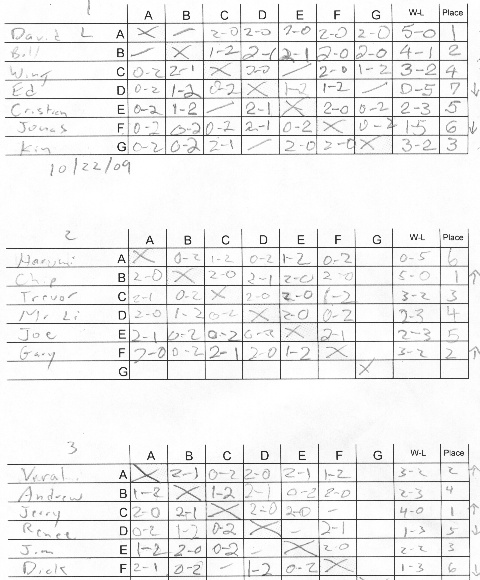 1
A B C D E F G W-L Place
David L A X – 2-0 2-0 2-0 2-0 2-0 5-0 1
Bill B – X 1-2 2-1 2-1 2-0 2-0 4-1 2
Wing C 0-2 2-1 X 2-0 – 2-0 1-2 3-2 4
Ed D 0-2 1-2 0-2 X 1-2 1-2 – 0-5 7 ↓
Cristian E 0-2 1-2 – 2-1 X 2-0 0-2 2-3 5
Jonas F 0-2 0-2 0-2 2-1 0-2 X 0-2 1-5 6 ↓
Kin G 0-2 0-2 2-1 – 2-0 2-0 X 3-2 3
10/22/09
2
A B C D E F G W-L Place
Harumi A X 0-2 1-2 0-2 1-2 0-2 0-5 6
Chip B 2-0 X 2-0 2-1 2-0 2-0 5-0 1 ↑
Trevor C 2-1 0-2 X 2-0 2-0 1-2 3-2 3
Mr Li D 2-0 1-2 0-2 X 2-0 0-2 2-3 4
Joe E 2-1 0-2 0-2 X 2-1 2-3 5
Gary F 2-0 0-2 2-1 2-0 1-2 X 3-2 2 ↑
G X
3
A B C D E F G W-L Place
Veral A X 2-1 0-2 2-0 2-1 1-2 3-2 2 ↑
Andrew B 1-2 X 1-2 2-1 0-2 2-0 2-3 4
Jerry C 2-0 2-1 X 2-0 2-0 – 4-0 1 ↑
Renee D 0-2 1-2 0-2 X – 2-1 1-3 5 ↓
Jim E 1-2 2-0 0-2 – X 2-0 2-2 3
Dick F 2-1 0-2 – 1-2 0-2 X 1-3 6 ↓